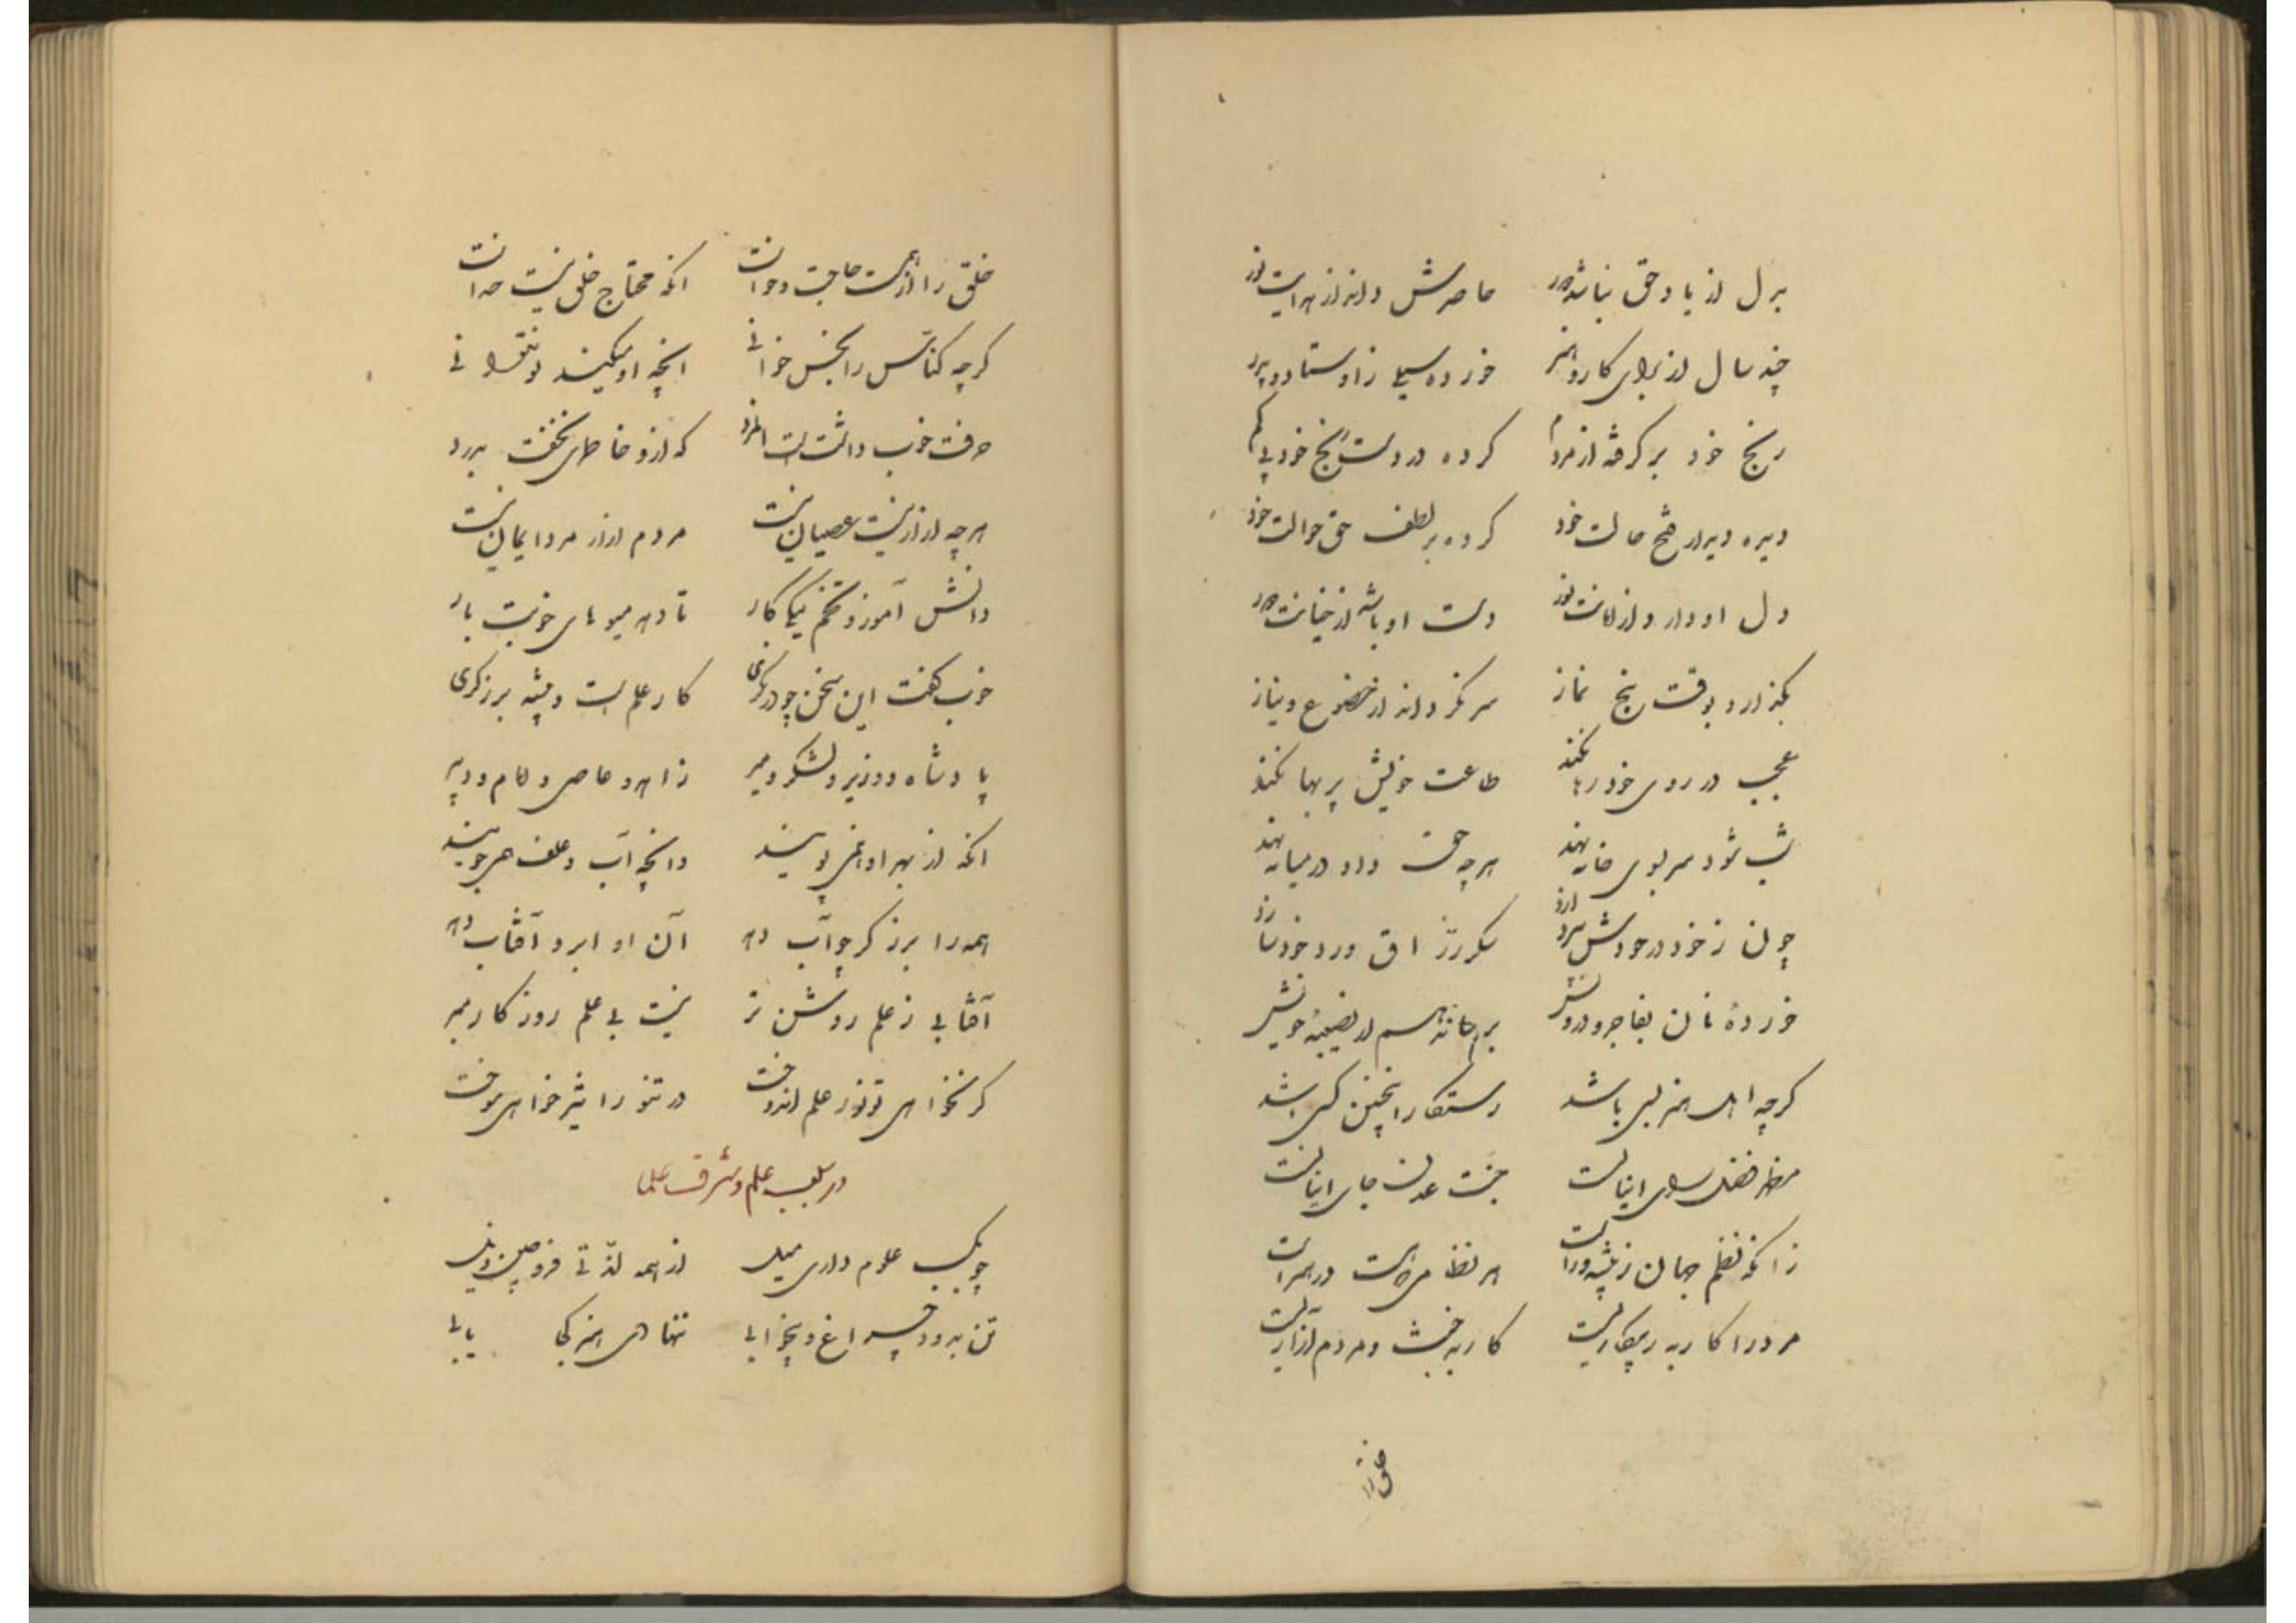 بدل از یاد حق نباشد دور حاصرش داند از هدایت نور
چند سال از برای کار و هنر خورده سیلی ز اوستاد و پدر
رنج خود برگرفته از مردم کرده در دست رنج خود پی گم
دیده دیدار فتح حالت خود کرده بر لطف حق حوالت خود
دل او دارد از امانت نور دست او باشد از خیانت دور
بگذارد بوقت پنج نماز سر نگرداند از خضوع و نیاز
عجب در روی خود رها نکند طاعت خویش پر بها نکند
شب شود سر بسوی خانه نهد هرچه حق داد در میانه نهد
چون ز خود در خودش سرد
خورده نان بفاجر و درویش بر همه از نصیبه خویش
گرچه اهل هنر بسی باشد رستگار اینچنین کسی باشد
مظهر فضل سرای اینانست جنت عدن جای اینانست
زانکه نظم جهان ز پیشه‌ورانست هر نظامی که هست در هنرانست
مرد را کار به ز بیکاریست کار به خبث و مردم آزاریست
خلق را
خلق را از است حاجت و خواست انکه محتاج خلق نیست خداست
گرچه کناس را نجس خوانی انچه او میکند تو نتوانی
حرفت خوب داشت است انمرد که ازو خاطری بخفت بدرد
هرچه ازار نیست عصیان نیست مردم ازار مرد ایمان نیست
دانش آموز و تخم نیکی کار تا دهد میوهای خوبت بار
خوب گفت این سخن چو درنگری کار علم است و پیشه برزگری
پادشاه و وزیر و لشکر و میر زاهد و عاصی و امام و دبیر
انکه از بهر او همی پویند وانچه آب و علف همی جویند
همه را برزگر چو آب دهد آن او ابر و آفتاب دهد
آفتابی ز علم روشن تر نیست بی علم روزگار مبر
گر نخواهی تو نور علم اندوخت در تنور اثیر خواهی سوخت
در طلب علم و شرف علما
چو بکسب علوم داری میل از همه لذتی فرو چین ذیل
تن بدود چراغ و بیخوابی ننهادی هنر کجا یابی